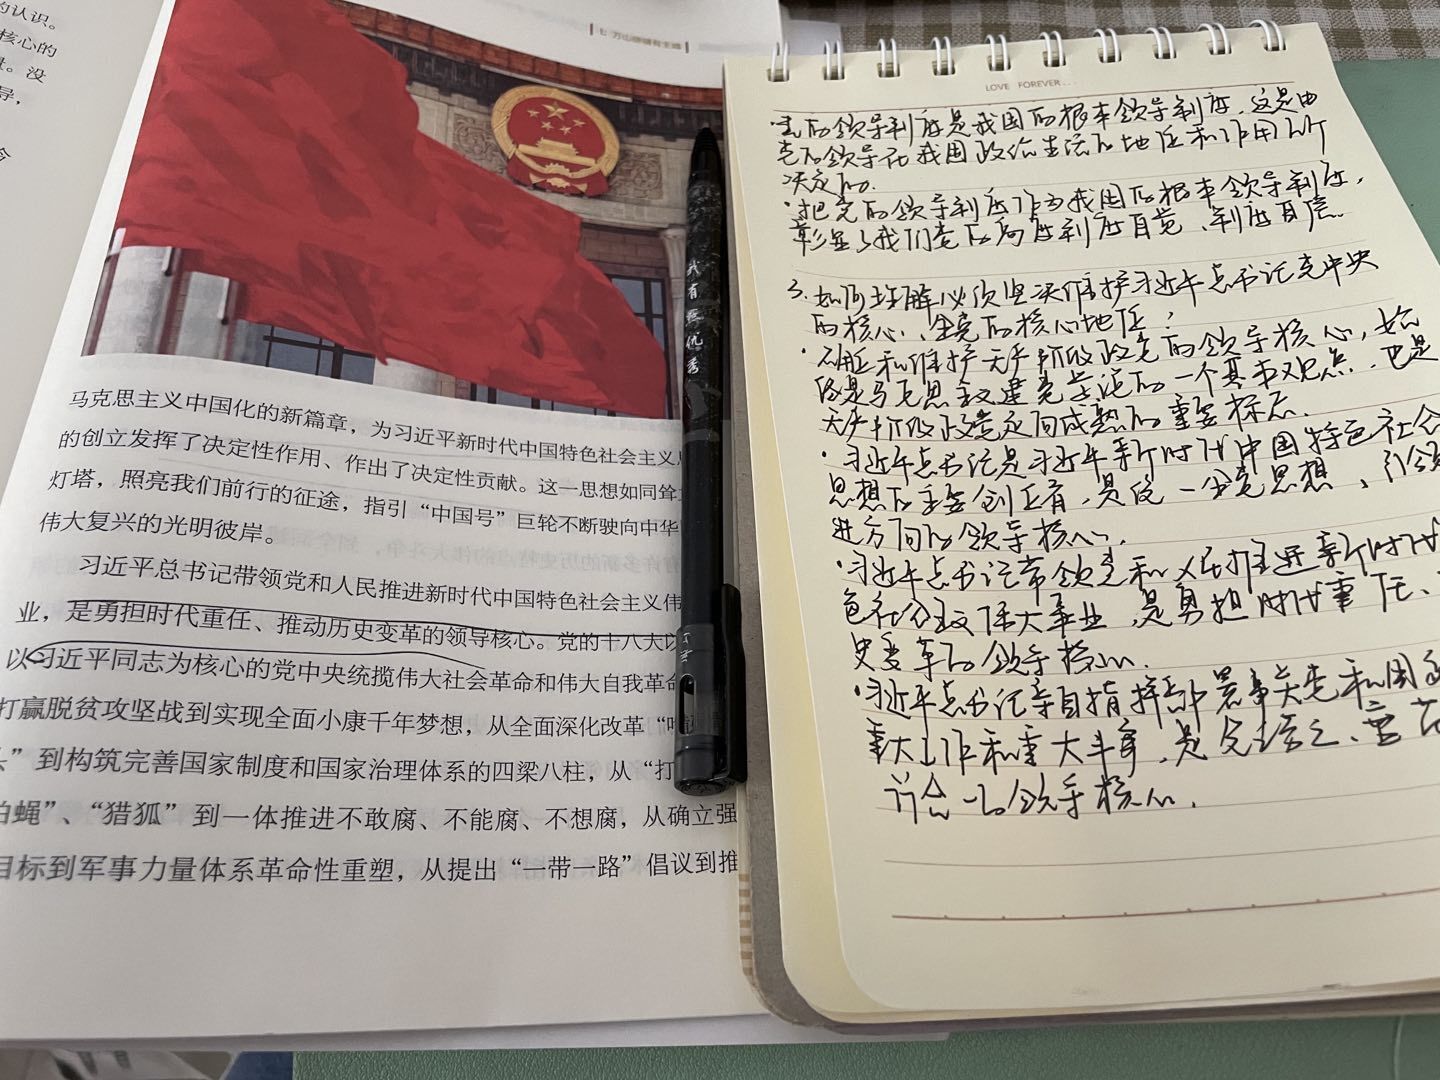 的认识。
核心的
没
导，
七 万山磅礴有主峰
马克思主义中国化的新篇章，为习近平新时代中国特色社会主义
的创立发挥了决定性作用、作出了决定性贡献。这一思想如同
灯塔，照亮我们前行的征途，指引“中国号”巨轮不断驶向中华
伟大复兴的光明彼岸。
习近平总书记带领党和人民推进新时代中国特色社会主义伟
业，是勇担时代重任、推动历史变革的领导核心。党的十八大以
以习近平同志为核心的党中央统揽伟大社会革命和伟大自我革命
打赢脱贫攻坚战到实现全面小康千年梦想，从全面深化改革“
”到构筑完善国家制度和国家治理体系的四梁八柱，从“打
拍蝇”、“猎狐”到一体推进不敢腐、不能腐、不想腐，从确立强
目标到军事力量体系革命性重塑，从提出“一带一路”倡议到推
我有多优秀
LOVE FOREVER...
·党的领导制度是我国的根本领导制度，这是由
党的领导在我国政治生活的地位和作用所
决定的.
·把党的领导制度作为我国的根本领导制度，
彰显了我们党的高度制度自觉、制度自信.
3.如何理解必须坚决维护习近平总书记党中央
的核心、全党的核心地位？
·确立和维护无产阶级政党的领导核心，始
终是马克思主义建党学说的一个基本观点，也是
无产阶级政党走向成熟的重要标志.
·习近平总书记是习近平新时代中国特色社会
思想的主要创立者，是统一全党思想、引领
进方向的领导核心.
·习近平总书记带领党和人民推进新时代
色社会主义伟大事业，是勇担时代重任、
史变革的领导核心.
·习近平总书记亲自指挥部署事关党和国
重大工作和重大斗争，是
的领导核心.